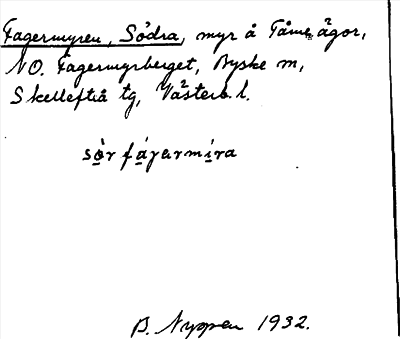 Fagermyren, Södra, myr å Tåme ägor,
NO. Fagermyrberget, Byske sn,
Skellefteå tg, Västerb. l.
sø̀r fáγərmíra
B. Nygren 1932.